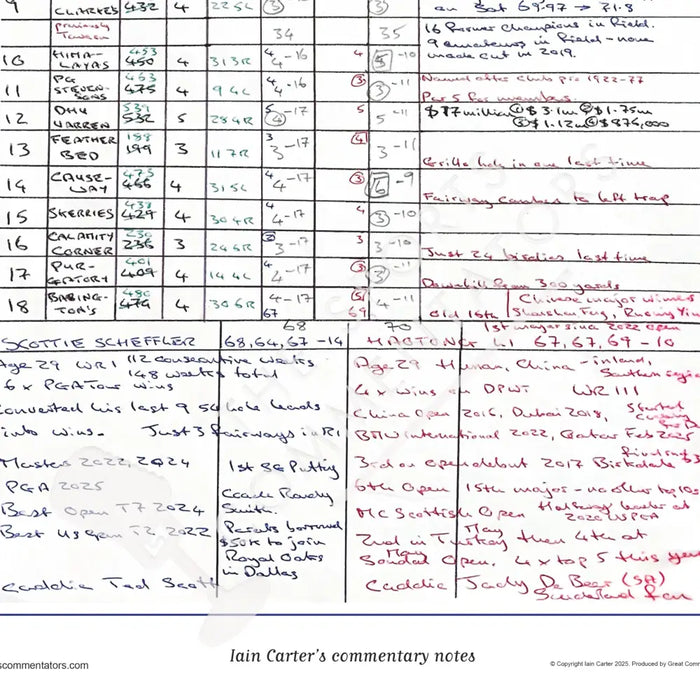 9 CLARKES 432 4 225L 3 3 an Sat 69.97 → 71.8
previously Tavern 34 35 16 former champions in field.
9 amateurs in field - none made cut in 2019.
10 HIMALAYAS 453 450 4 313R 4 4 -16 5 -10
11 PG STEVENSONS 463 475 4 94L 4 -16 3 3 -11 Named after club pro 1922-77
Par 5 for members.
12 DHU VARREN 539 532 5 284R 5 4 -17 5 5 -11 $17 million ① $3.1m ② $1.75m
③ $1.12m ④ $876,000
13 FEATHER BED 188 199 3 117R 3 3 -17 4 3 -11
Grillo hole in one last time
14 CAUSEWAY 475 466 4 315L 4 4 -17 3 6 -9
Fairway cambers to left trap
15 SKERRIES 438 429 4 304R 4 4 -17 4 3 -10
16 CALAMITY CORNER 230 236 3 246R 2 3 -17 3 3 -10
Just 24 birdies last time
17 PURGATORY 401 409 4 144L 4 4 -17 3 3 -11
Downhill from 300 yards
18 BABINGTON'S 480 474 4 306R 4 -17 5 4 -11 Old 16th Chinese major winners
67 69 Shanshan Feng, Ruoning Yin
68 70 1st major since 2022 Open
SCOTTIE SCHEFFLER 68,64,67 -14 HAOTONG LI 67,67,69 -10
Age 29 WR1 112 consecutive weeks
148 weeks total
16 x PGA Tour wins
Converted his last 9 54 hole leads
into wins. Just 3 fairways in R1
Masters 2022, 2024
PGA 2025
Best Open T7 2024
Best US Open T2 2022
Caddie Ted Scott
1st SG Putting
Coach Randy Smith.
Parents borrowed
$50K to join
Royal Oaks
in Dallas
Age 29 Hunan, China - inland,
Southern region
4 x wins on DPWT WR 111
China Open 2016, Dubai 2018,
BMW International 2022, Qatar Feb 2025
3rd on Open debut 2017 Birkdale
6th Open 15th major - no other top 10s
MC Scottish Open Halfway leader at
2020 USPGA
2nd in Turkey May then 4th at
Soudal Open. May 4 x top 5 this year
Caddie Jady De Beer (SA)
Sunderland fan
Iain Carter's commentary notes
scommentators.com
© Copyright Iain Carter 2025. Produced by Great Comm